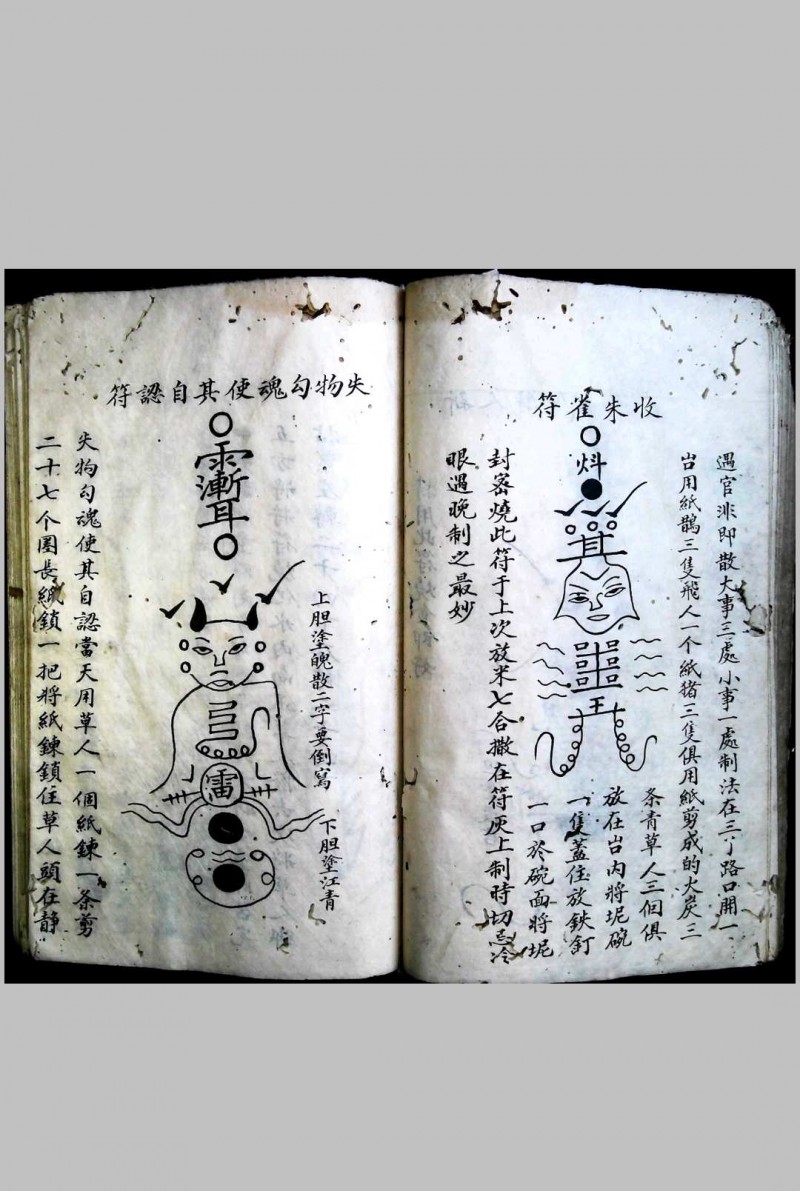 收朱雀符
遇官非即散大事三處小事一處制法在三丫路口開一
用紙鵲三隻飛人一个紙猪三隻俱用紙剪成的大炭三
条青草人三個俱
放在内將坭碗
一隻蓋住放鉄釘
一口於碗面將坭
炓
王
封密燒此符于上次放米七合撒在符灰上制時切忌冷
眼遇晚制之最妙
失物勾魂使其自認符
上胆塗魄散二字要倒寫
下胆塗江青
雷
失物勾魂使其自認當天用草人一個紙鍊一条剪
二十七个圈長紙鎖一把將紙鍊鎖住草人頭在静